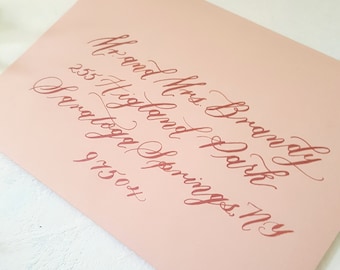 Mr. and Mrs. Brandy
255 Higland Park
Saratoga Springs, NY
97504